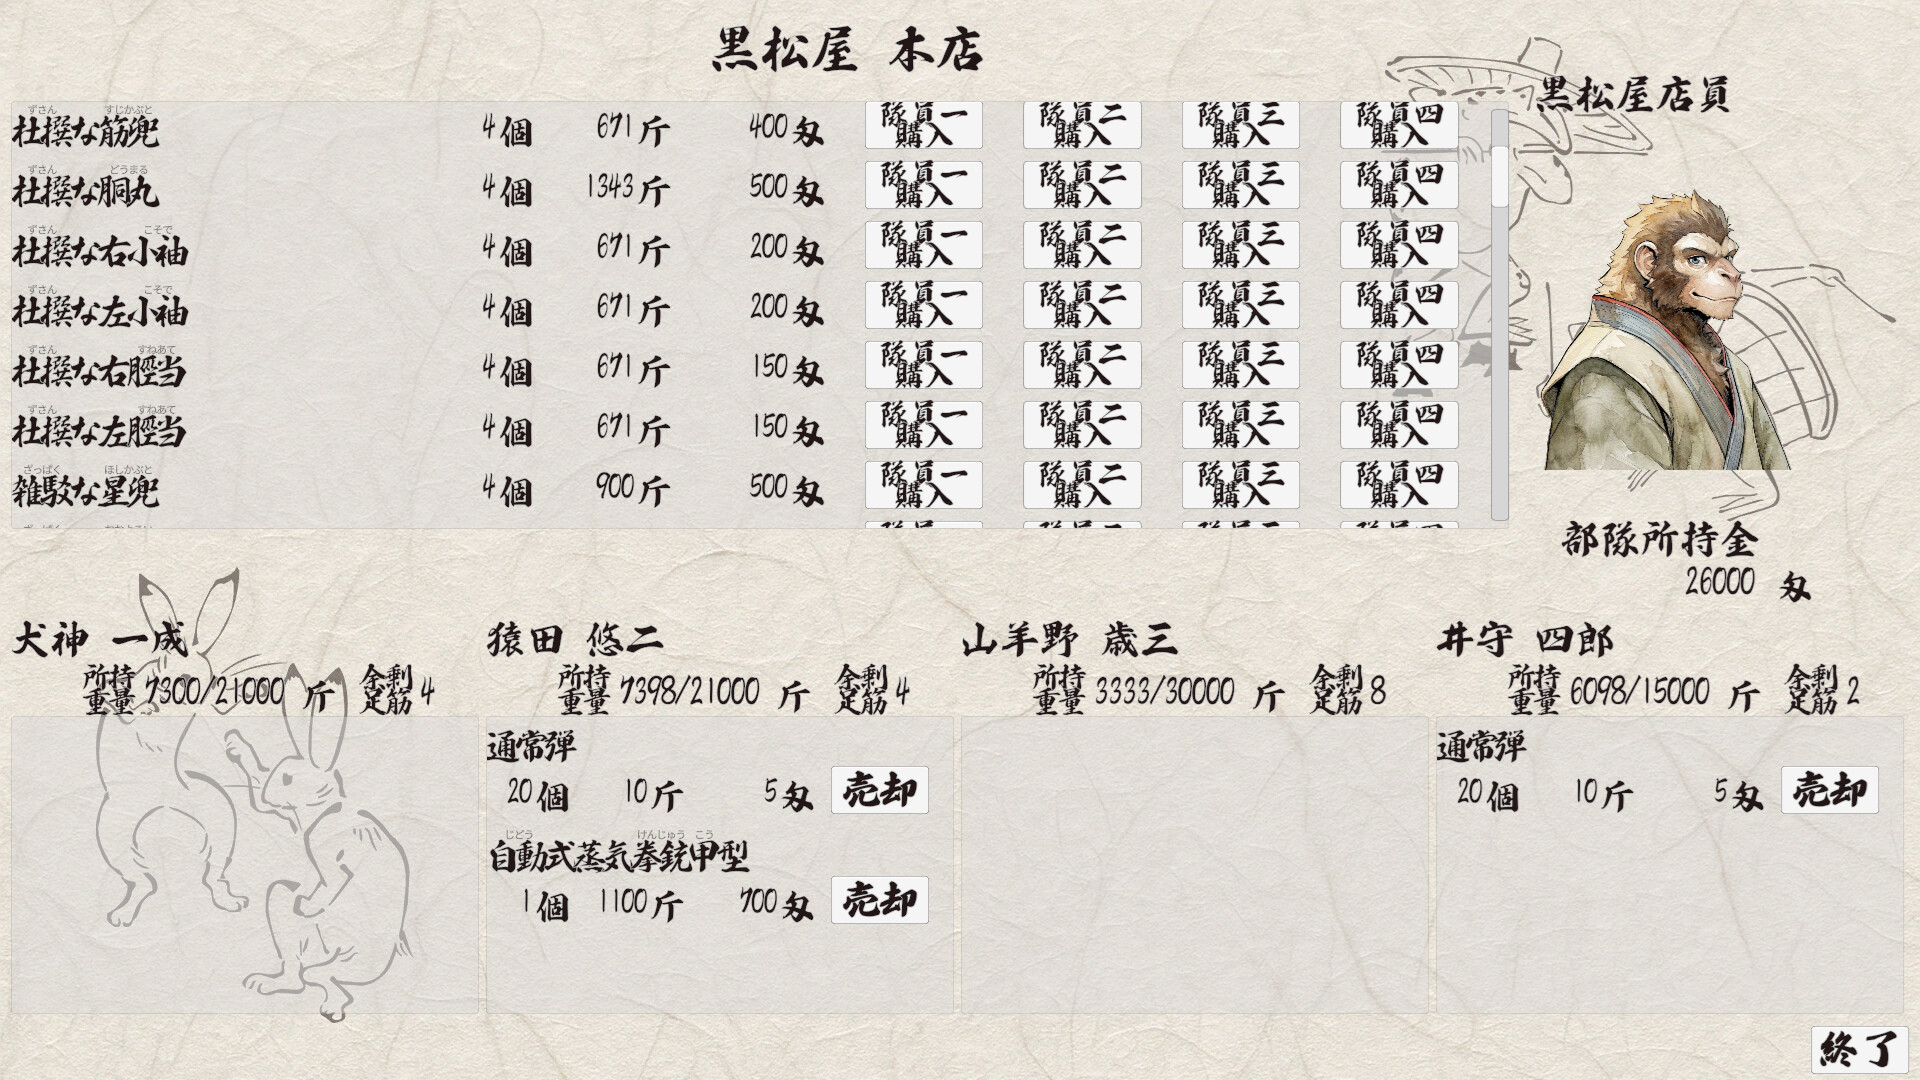 黒松屋 本店
黒松屋店員
ずさん すじかぶと
杜撰な筋兜 4個 671斤 400匁 隊員一購入 隊員二購入 隊員三購入 隊員四購入
ずさん どうまる
杜撰な胴丸 4個 1343斤 500匁 隊員一購入 隊員二購入 隊員三購入 隊員四購入
ずさん こそで
杜撰な右小袖 4個 671斤 200匁 隊員一購入 隊員二購入 隊員三購入 隊員四購入
ずさん こそで
杜撰な左小袖 4個 671斤 200匁 隊員一購入 隊員二購入 隊員三購入 隊員四購入
ずさん すねあて
杜撰な右脛当 4個 671斤 150匁 隊員一購入 隊員二購入 隊員三購入 隊員四購入
ずさん すねあて
杜撰な左脛当 4個 671斤 150匁 隊員一購入 隊員二購入 隊員三購入 隊員四購入
ざっぱく ほしかぶと
雑駁な星兜 4個 900斤 500匁 隊員一購入 隊員二購入 隊員三購入 隊員四購入
部隊所持金
26000 匁
犬神 一成
所持重量 7300/21000 斤 余剰足筋 4
猿田 悠二
所持重量 7398/21000 斤 余剰足筋 4
通常弾
20個 10斤 5匁 売却
じどう けんじゅう こう
自動式蒸気拳銃甲型
1個 1100斤 700匁 売却
山羊野 歳三
所持重量 3333/30000 斤 余剰足筋 8
井守 四郎
所持重量 6098/15000 斤 余剰足筋 2
通常弾
20個 10斤 5匁 売却
終了